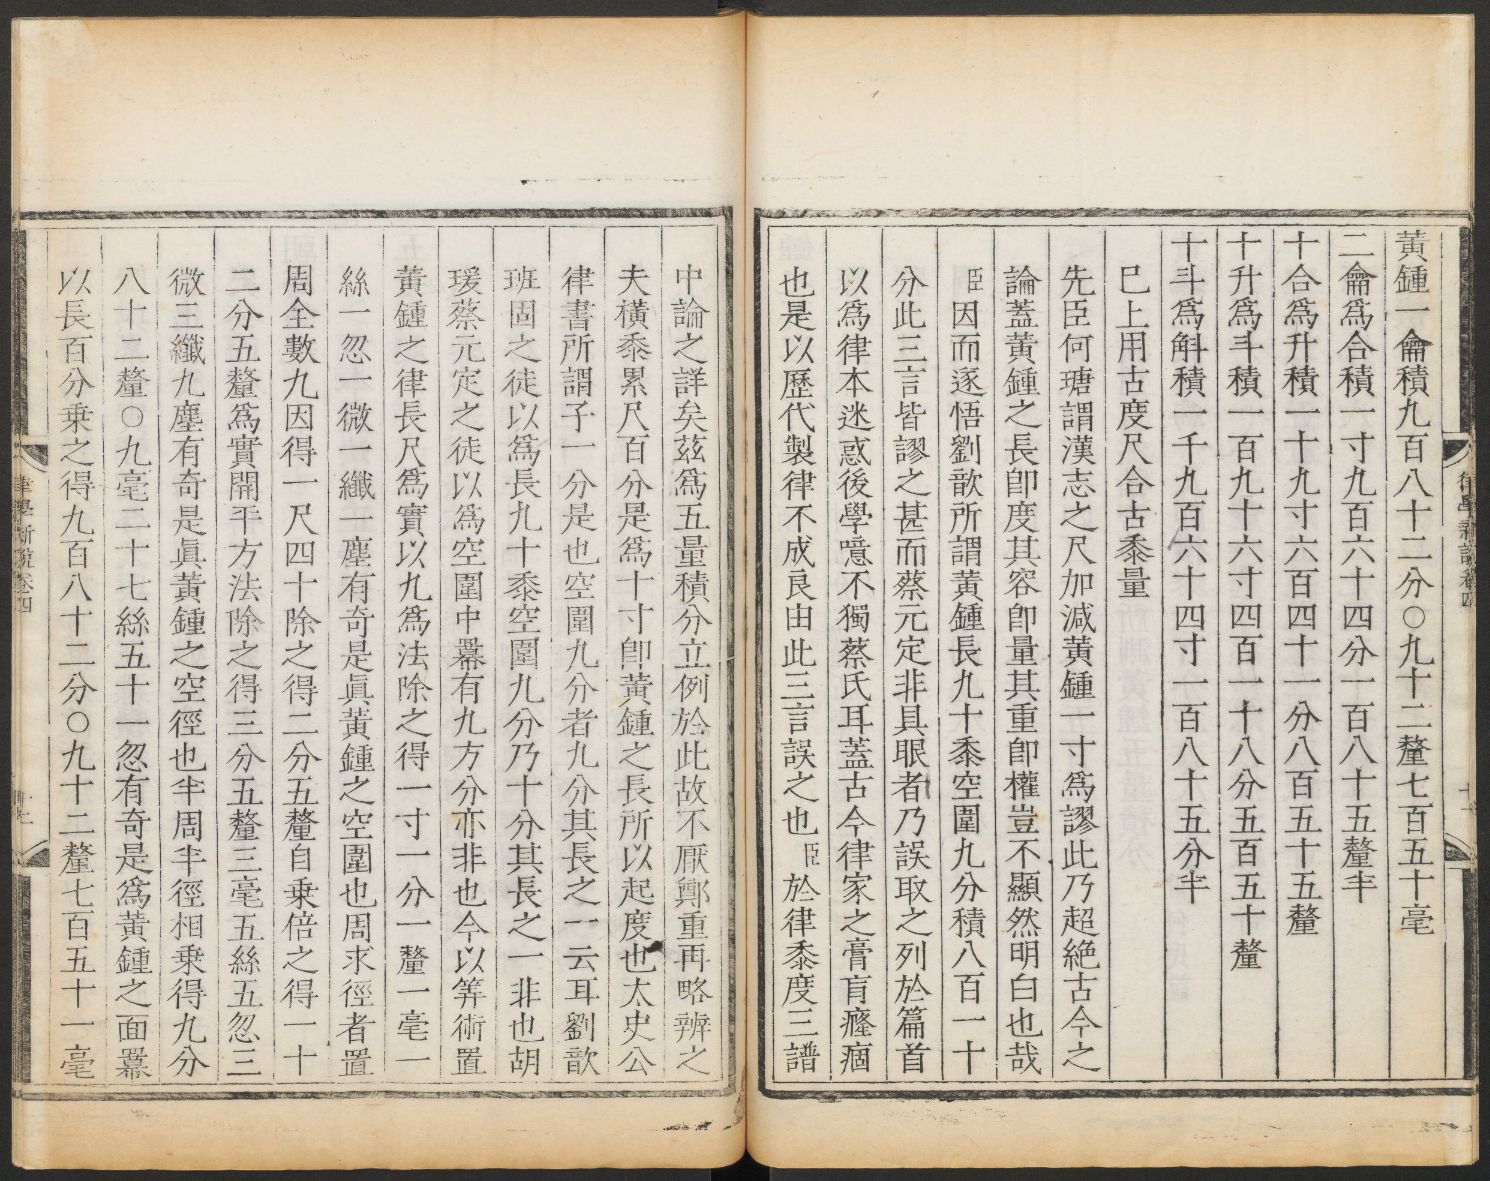 黃鍾一龠積九百八十二分〇九十二釐七百五十毫
二龠爲合積一寸九百六十四分一百八十五釐半
十合爲升積一十九寸六百四十一分八百五十五釐
十升爲斗積一百九十六寸四百一十八分五百五十釐
十斗爲斛積一千九百六十四寸一百八十五分半
已上用古度尺合古黍量
先臣何瑭謂漢志之尺加減黃鍾一寸爲謬此乃超絶古今之
論蓋黃鍾之長卽度其容卽量其重卽權豈不顯然明白也哉
臣因而逐悟劉歆所謂黃鍾長九十黍空圍九分積八百一十
分此三言皆謬之甚而蔡元定非具眼者乃誤取之列於篇首
以爲律本迷惑後學噫不獨蔡氏耳蓋古今律家之膏肓癃痼
也是以歷代製律不成良由此三言誤之也臣於律黍度三譜
中論之詳矣茲爲五量積分立例於此故不厭鄭重再略辨之
夫橫黍累尺百分是爲十寸卽黃鍾之長所以起度也太史公
律書所謂子一分是也空圍九分者九分其長之一云耳劉歆
班固之徒以爲長九十黍空圍九分乃十分其長之一非也胡
瑗蔡元定之徒以爲空圍中羃有九方分亦非也今以筭術置
黃鍾之律長尺爲實以九爲法除之得一寸一分一釐一毫一
絲一忽一微一纖一塵有奇是眞黃鍾之空圍也周求徑者置
周全數九因得一尺四十除之得二分五釐自乗倍之得一十
二分五釐爲實開平方法除之得三分五釐三毫五絲五忽三
微三纖九塵有奇是眞黃鍾之空徑也半周半徑相乗得九分
八十二釐〇九毫二十七絲五十一忽有奇是爲黃鍾之面羃
以長百分乗之得九百八十二分〇九十二釐七百五十一毫
律學新說卷四
律學新說卷四